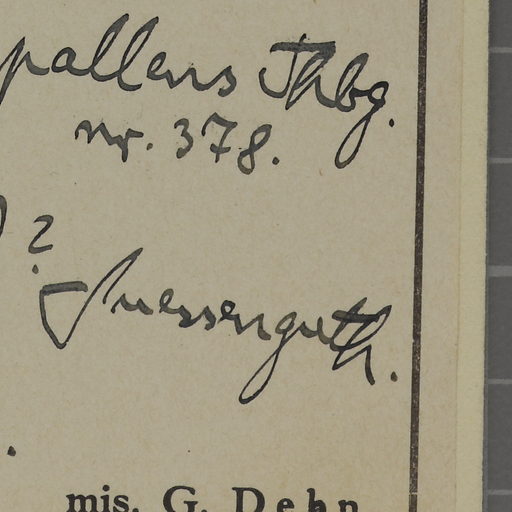 pallens Thbg.
nr. 378.
?
Suessenguth.
mis. G. Dehn